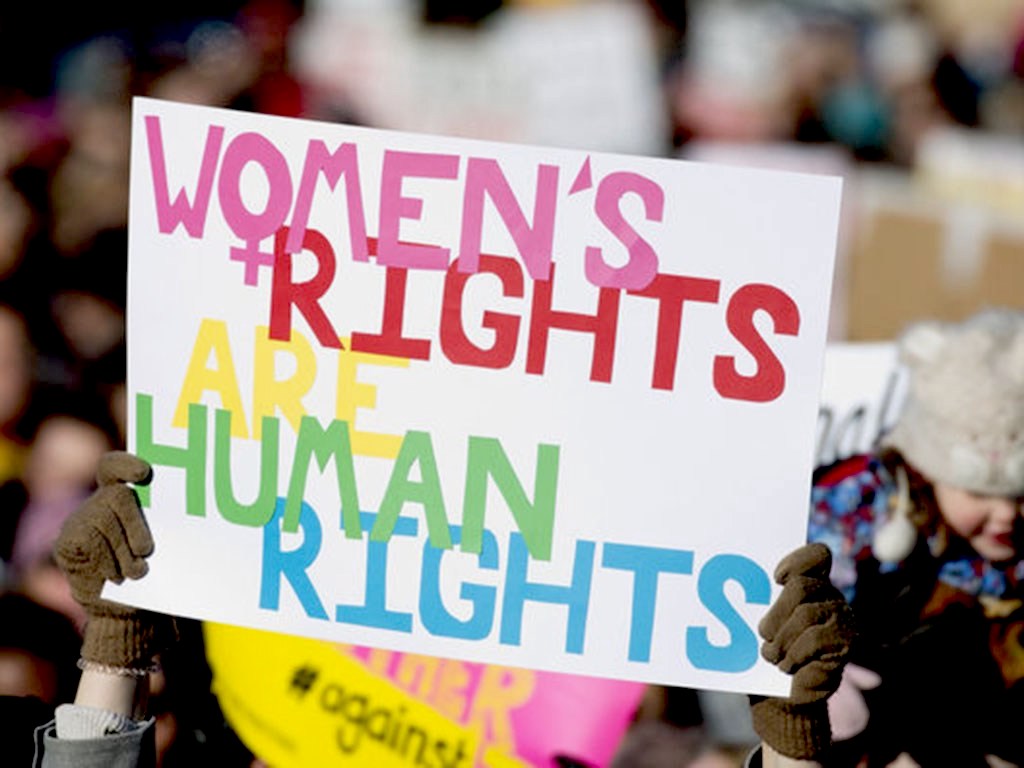 WOMEN'S
RIGHTS
ARE
HUMAN
RIGHTS
#against